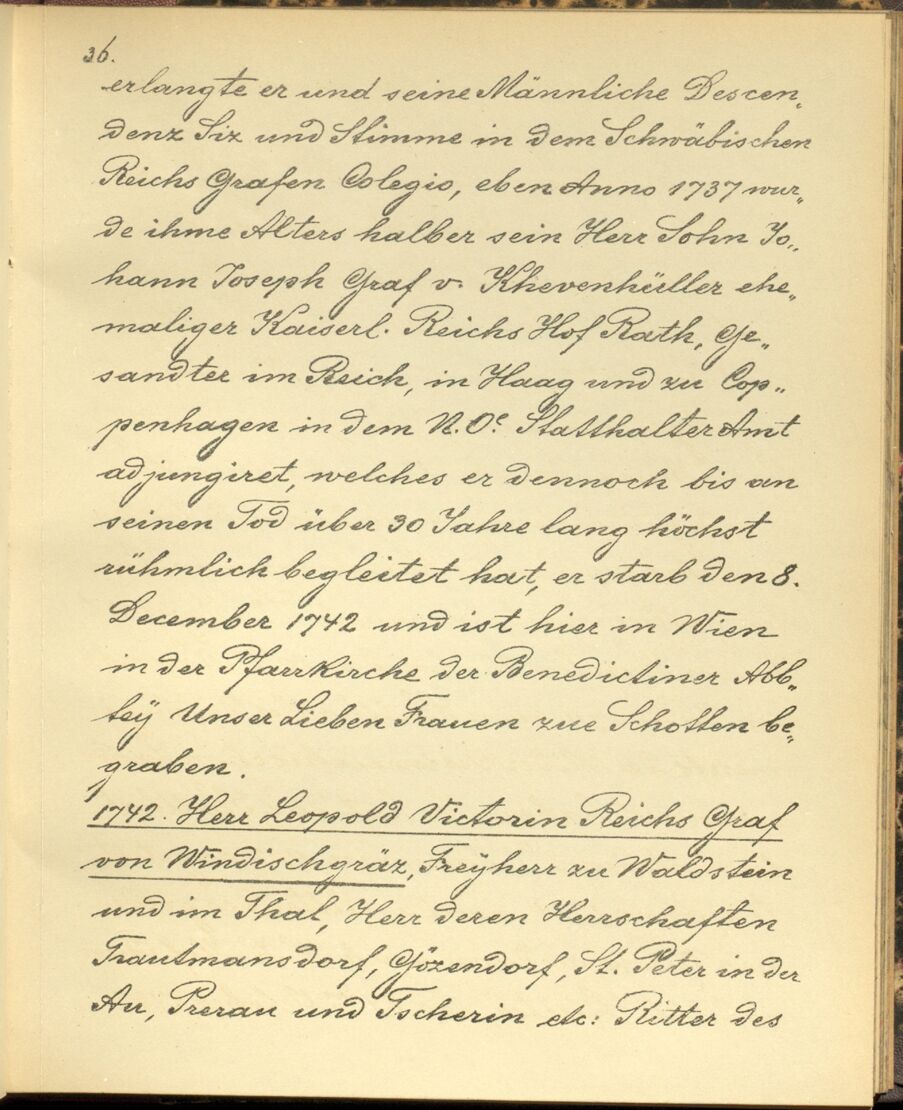 36.
erlangte er und seine Männliche Descen„
denz Siz und Stimme in dem Schwäbischen
Reichs Grafen Colegio, eben Anno 1737 wur„
de ihme Alters halber sein Herr Sohn Jo„
hann Joseph Graf v. Khevenhüller ehe„
maliger Kaiserl. Reichs Hof Rath, Ge„
sandter im Reich, in Haag und zu Cop„
penhagen in dem N. Oe. Statthalter Amt
adjungiret, welches er dennoch bis an
seinen Tod über 30 Jahre lang höchst
rühmlich begleitet hat, er starb den 8.
December 1742 und ist hier in Wien
in der Pfarrkirche der Benedictiner Abb„
teÿ Unser Lieben Frauen zue Schotten be„
graben.
1742. Herr Leopold Victorin Reichs Graf
von Windischgräz, Freÿherr zu Waldstein
und im Thal, Herr deren Herrschaften
Trautmansdorf, Gözendorf, St. Peter in der
Au, Prerau und Tscherin etc: Ritter des